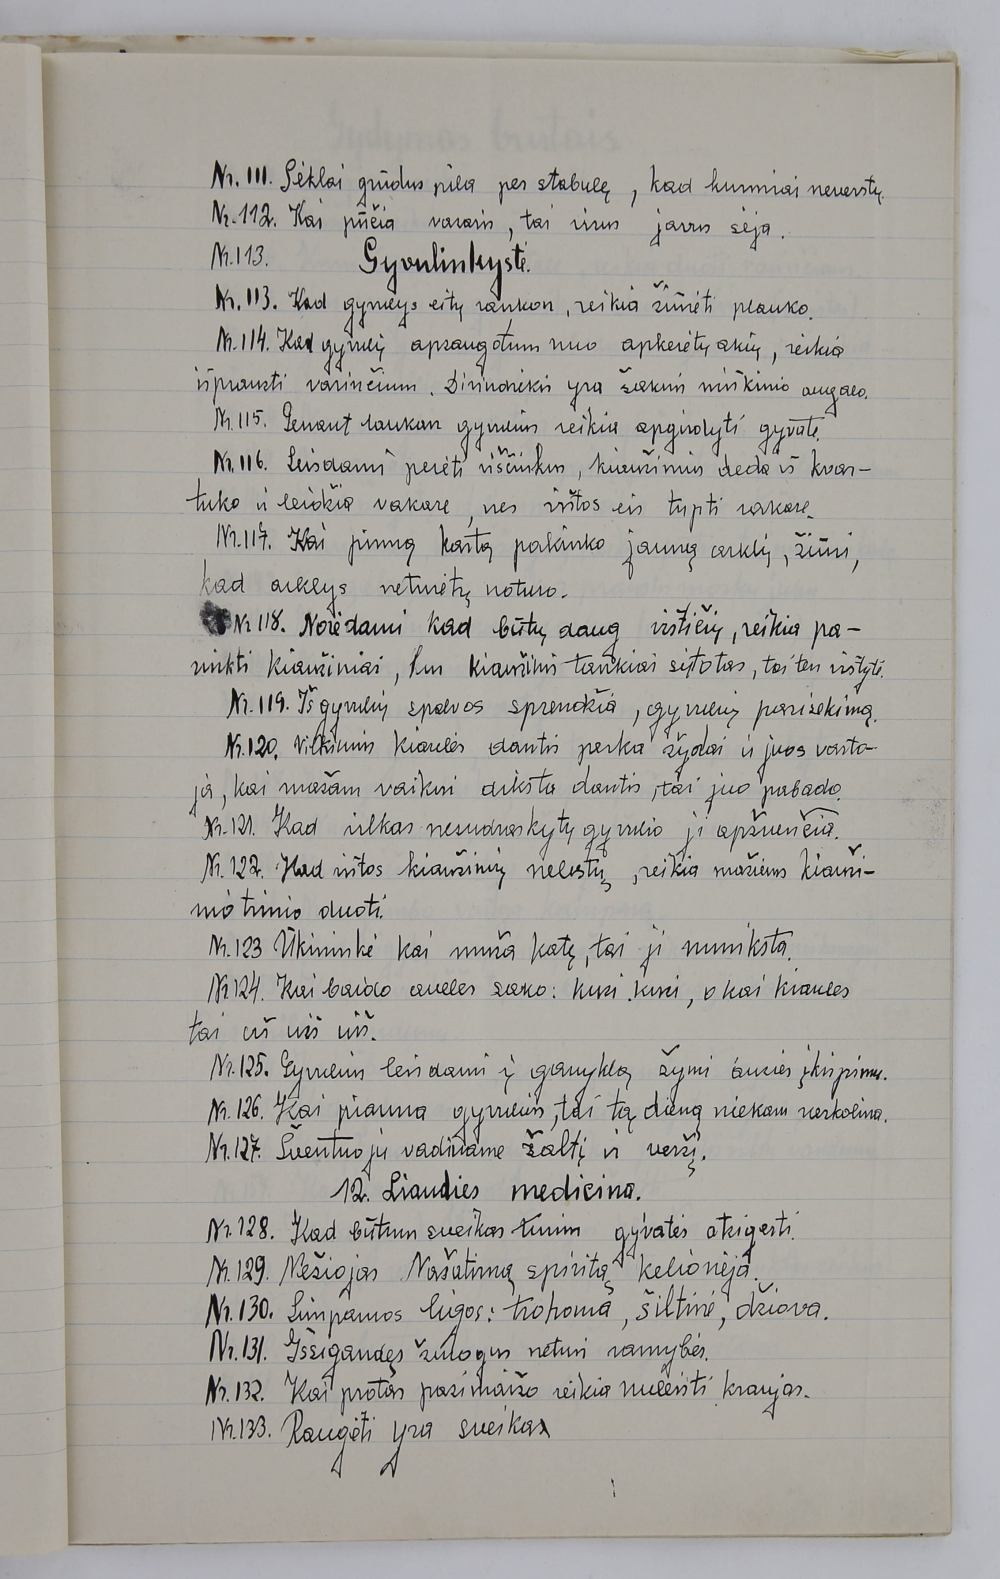 Nr. 111. Sėklai grūdus pila per stabulę, kad kurmiai neverstų.
Nr. 112. Kai pučia vasaris, tai visus javus sėja.
Nr. 113. Gyvulinkystė.
Nr. 113. Kad gyvulys eitų rankon, reikia žiūrėti plauko.
Nr. 114. Kad gyvulį apsaugotum nuo apkerėtų akių, reikia
išprausti . yra šaknis miškinio augalo.
Nr. 115. Genant laukan gyvulius reikia apgirdyti gyvate.
Nr. 116. Leisdami perėti viščiukus, kiaušinius deda iš kvar-
tuko ir leidžia vakare, nes vištos eis tupti vakare.
Nr. 117. Kai pirmą kartą pakinko jauną arklį, žiūri,
kad arklys neturėtų noturo.
Nr 118. Norėdami kad būtų daug vištičių, reikia pa-
rinkti kiaušiniai, kur kiaušinis tankiai sietotas, tai ten vištytė.
Nr. 119. Iš gyvulių spalvos sprendžia, gyvulių pasisekimą.
Nr. 120. Vilkinius kiaulės dantis perka žydai ir juos varto-
ja, kai mažam vaikui diksta dantis, tai juo pabado.
Nr. 121. Kad vilkas nesudraskytų gyvulio jį apšvenčia.
Nr. 122. Kad vištos kiaušinių nelestų, reikia mažiems kiauši-
nio trinio duoti.
Nr. 123 Ūkininkė kai muša katę, tai ji numiksta.
Nr 124. Kai baido aveles sako: kuri kuri, o kai kiaules
tai uš uš uš.
Nr. 125. Gyvulius leisdami į ganyklą žymi ausies įkirpimu.
Nr. 126. Kai piauna gyvulius, tai tą dieną niekam neskolina.
Nr. 127. Šventuoju vadiname žaltį ir veršį.
12. Liaudies medicina.
Nr. 128. Kad būtum sveikas turim gyvatės atsigerti.
Nr. 129. Nešiojas Našatirną spiritą kelionėja.
Nr. 130. Limpamos ligos: trahoma, šiltinė, džiova.
Nr. 131. Išsigandęs žmogus neturi ramybės.
Nr. 132. Kai protas pasimaišo reikia nuleisti kraujas.
Nr. 133. Raugėti yra sveika